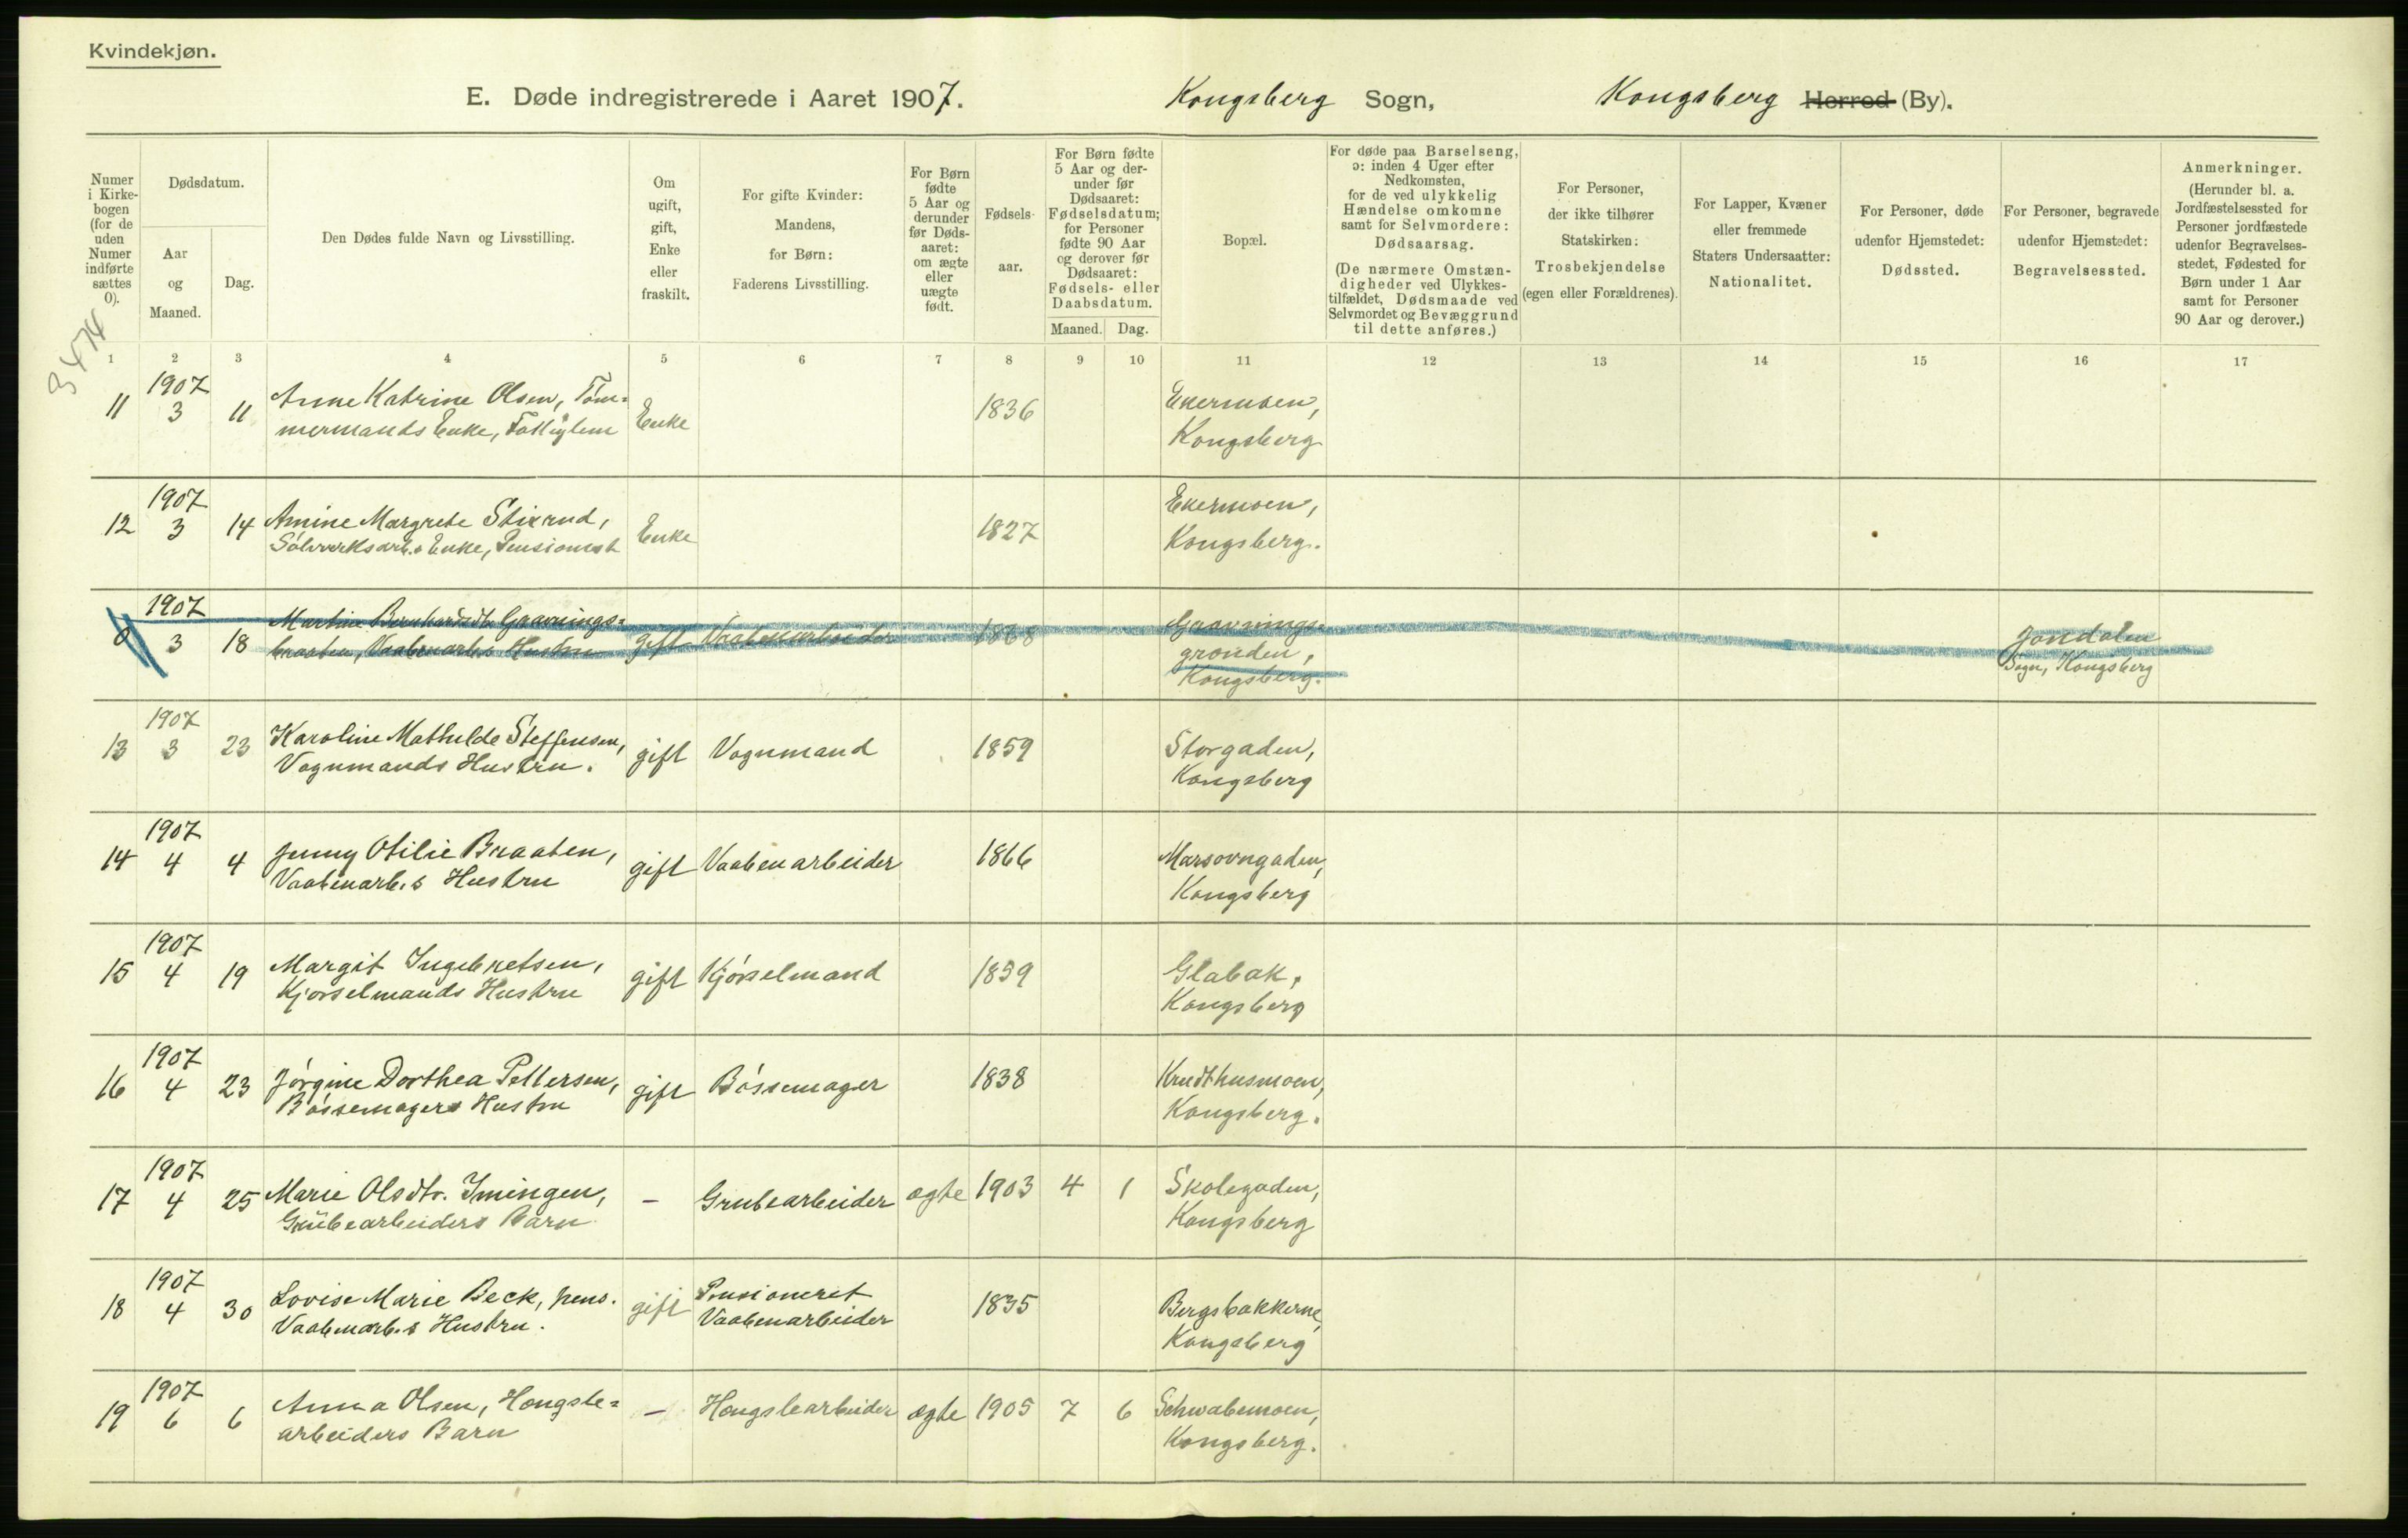 Kvindekjøn.
E. Døde indregistrerede i Aaret 1907. Kongsberg Sogn, Kongsberg Herred (By).
Numer i Kirkebogen (for de uden Numer indførte sættes 0).
Dødsdatum.
Aar og Maaned.
Dag.
Den Dødes fulde Navn og Livsstilling.
Om ugift, gift, Enke eller fraskilt.
For gifte Kvinder: Mandens, for Børn: Faderens Livsstilling.
For Børn fødte 5 Aar og derunder før Dødsaaret: om ægte eller uægte født.
Fødselsaar.
For Børn fødte 5 Aar og derunder før Dødsaaret: Fødselsdatum; for Personer fødte 90 Aar og derover før Dødsaaret: Fødsels- eller Daabsdatum.
Maaned. Dag.
Bopæl.
For døde paa Barselseng, ɔ: inden 4 Uger efter Nedkomsten, for de ved ulykkelig Hændelse omkomne samt for Selvmordere: Dødsaarsag.
(De nærmere Omstændigheder ved Ulykkestilfældet, Dødsmaade ved Selvmordet og Bevæggrund til dette anføres.)
For Personer, der ikke tilhører Statskirken: Trosbekjendelse (egen eller Forældrenes).
For Lapper, Kvæner eller fremmede Staters Undersaatter: Nationalitet.
For Personer, døde udenfor Hjemstedet: Dødssted.
For Personer, begravede udenfor Hjemstedet: Begravelsessted.
Anmerkninger.
(Herunder bl. a. Jordfæstelsessted for Personer jordfæstede udenfor Begravelsesstedet, Fødested for Børn under 1 Aar samt for Personer 90 Aar og derover.)
3474
1 2 3 4 5 6 7 8 9 10 11 12 13 14 15 16 17
1907
11 3 11 Anne Katrine Olsen, Tøm=
mermands Enke, Fattiglem Enke 1836 Ekermoen,
Kongsberg
1907
12 3 14 Amine Margrete Stixrud,
Sølvverksarb.s Enke, Pensionist Enke 1827 Ekermoen,
Kongsberg.
1907
0 3 18 Martine
braaten, Vaabenarb.s Hustru gift Vaabenarbeider 1868
grønden,
Kongsberg.
Jondalen
Sogn, Kongsberg
1907
13 3 23 Karoline Mathilde Steffensen,
Vognmands Hustru. gift Vognmand 1859 Storgaden,
Kongsberg
1907
14 4 4 Jenny Otilie Braaten,
Vaabenarb.s Hustru gift Vaabenarbeider 1866 Marsovngaden,
Kongsberg
1907
15 4 19 Margit Ingebretsen,
Kjørselmands Hustru gift Kjørselmand 1859 Glabak,
Kongsberg
1907
16 4 23 Jørgine Dorthea Pettersen,
Bøssemagers Hustru gift Bøssemager 1838 Krudthusmoen,
Kongsberg.
1907
17 4 25 Marie Olsdtr. Imingen,
Grubearbeiders Barn - Grubearbeider ægte 1903 4 1 Skolegaden,
Kongsberg
1907
18 4 30 Lovise Marie Beck, pens.
Vaabenarb.s Hustru. gift Pensioneret
Vaabenarbeider 1835 Bergsbakkerne,
Kongsberg
1907
19 6 6 Anna Olsen, Hougsle=
arbeiders Barn - Hougslearbeider ægte 1905 7 6 Schwabemoen,
Kongsberg.